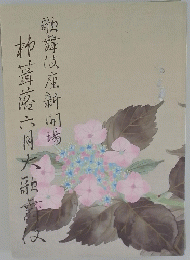 歌舞伎座新開場
柿葺落六月大歌舞伎